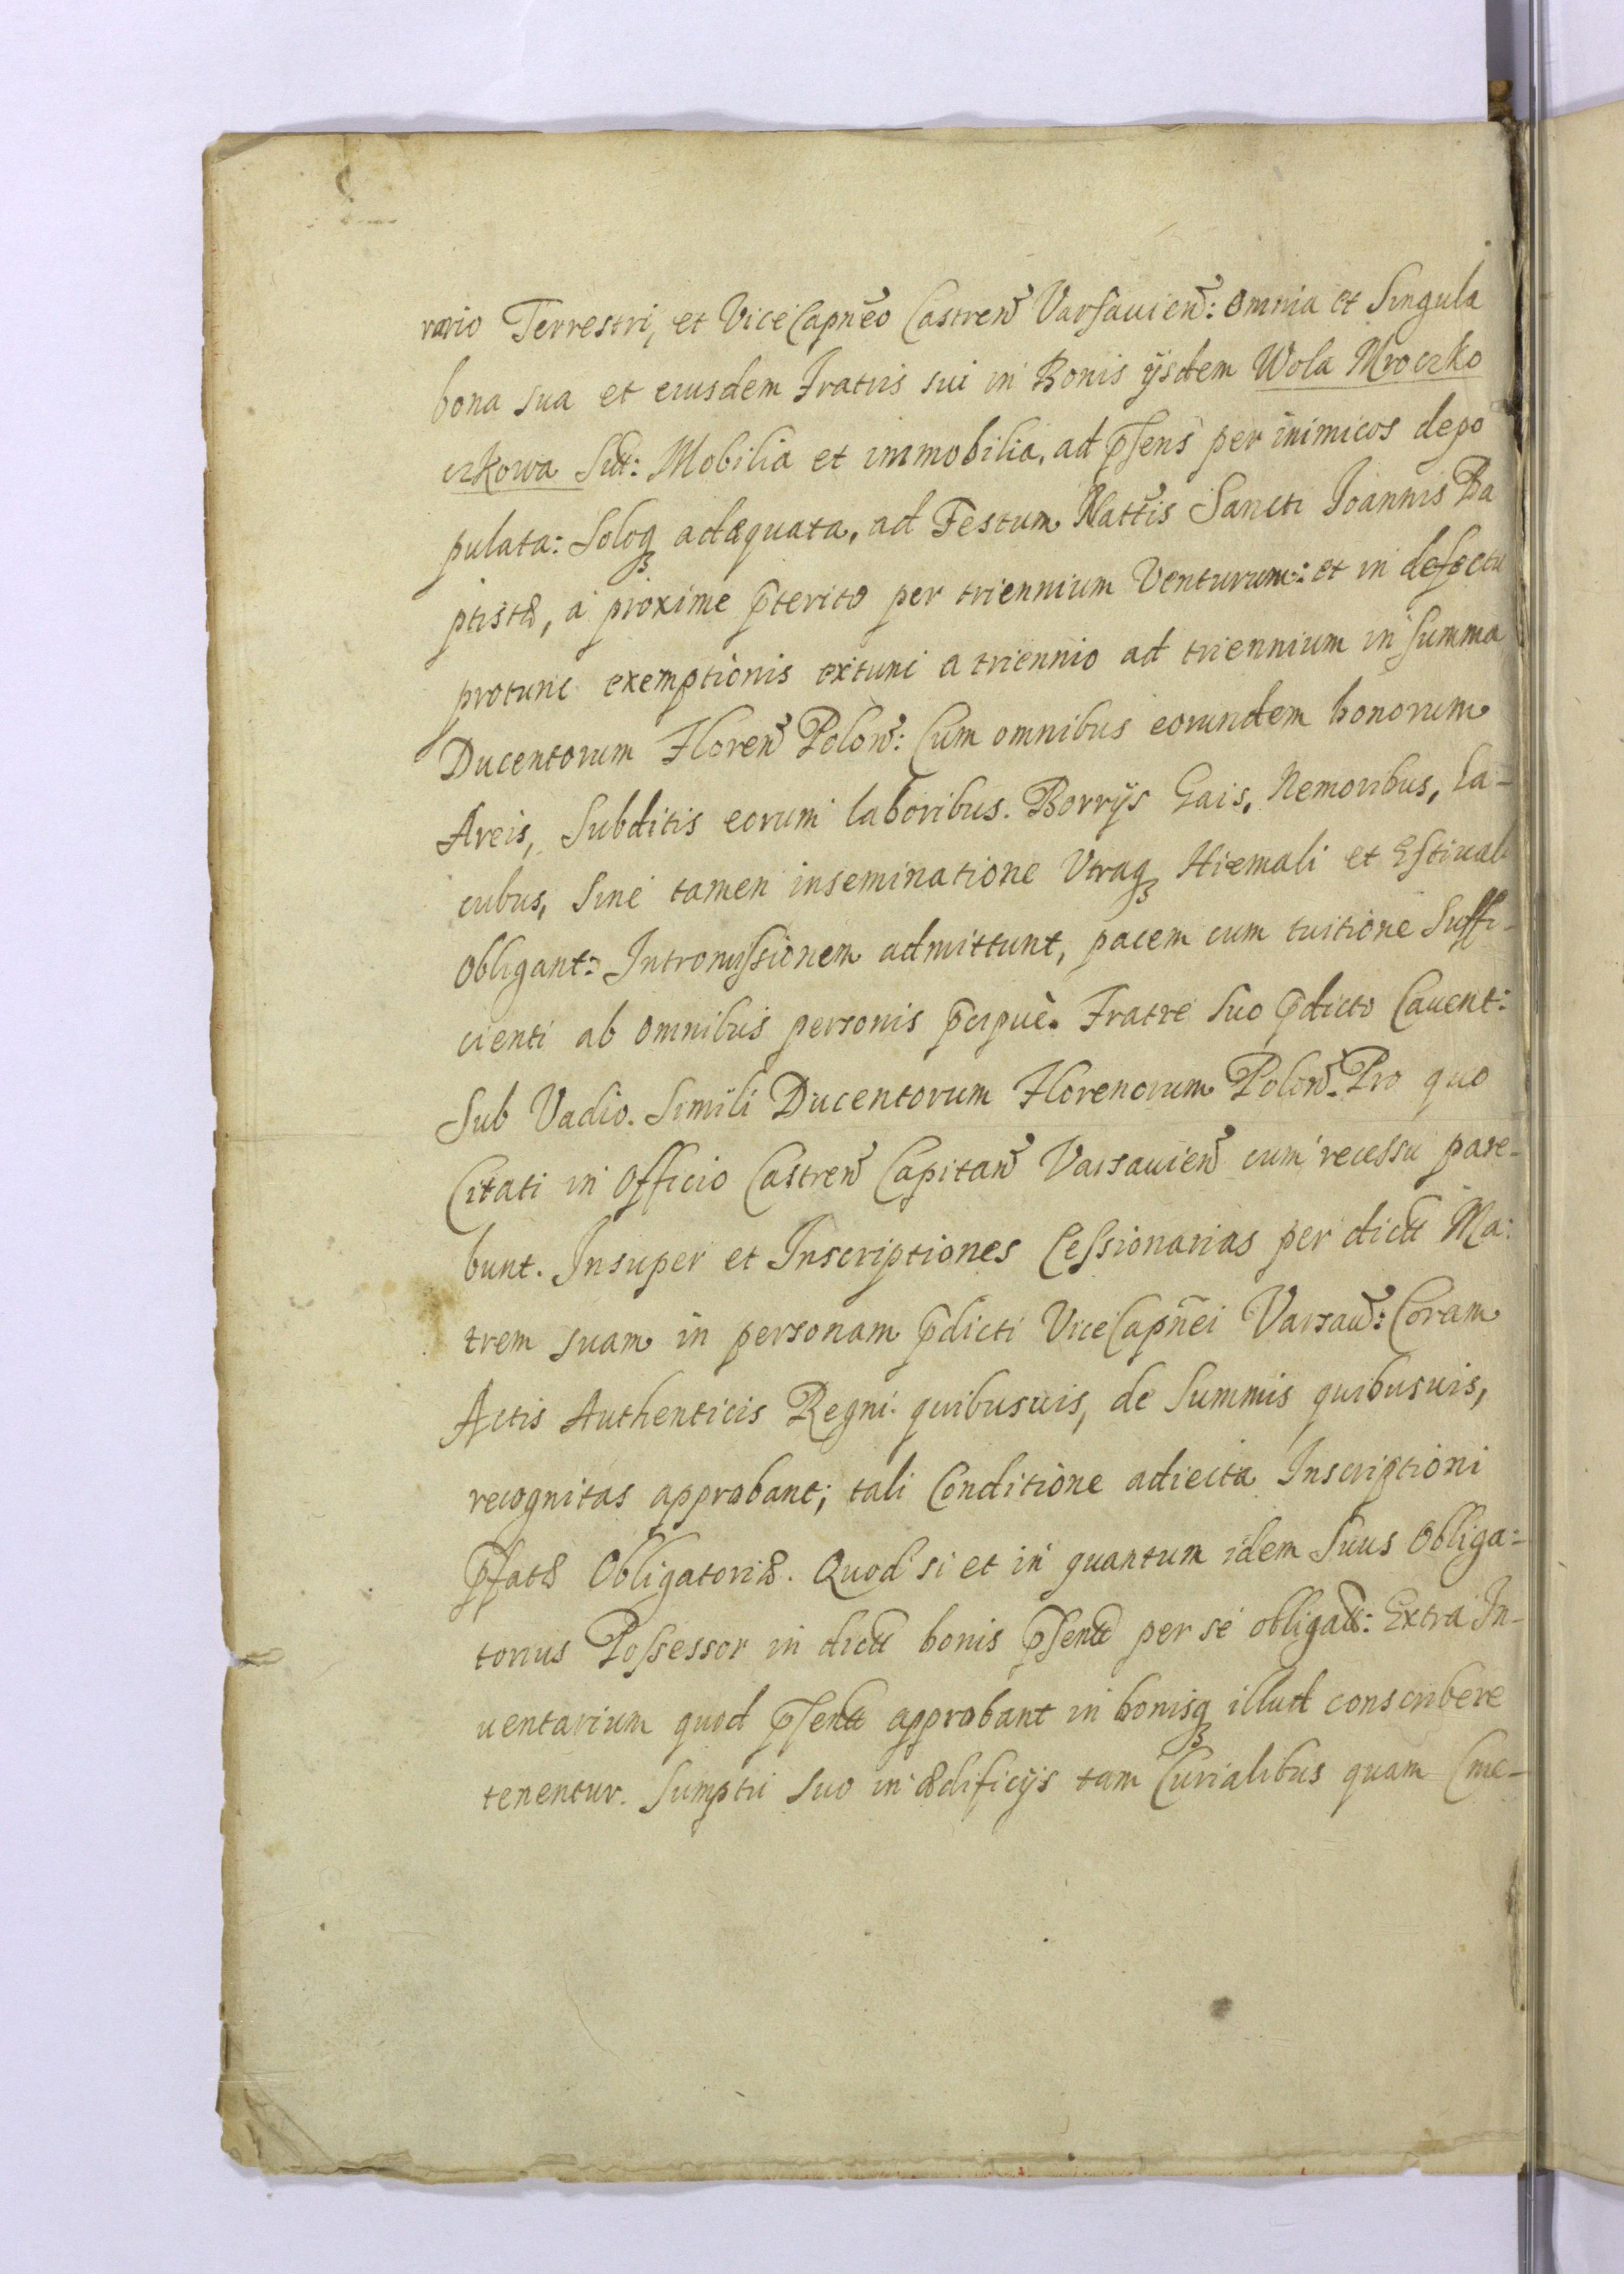 rario Terrestri, et ViceCapneo Castren Varsauien: omnia et Singula
bona sua et eiusdem Fratris sui in Bonis ijsdem Wola Mroczko
czkowa Sitt: Mobilia et immobilia, ad p̄sens per inimicos depo
pulata: Soloq₃ adæquata, ad Festum Nattis Sancti Joannis Ba
ptistæ, a proxime p̄terito per triennium Venturum: et in defectu
protunc exemptionis extunc a triennio ad triennium in summa
Ducentorum Floren Polon: Cum omnibus eorundem bonorum
Areis, Subditis eorum laboribus. Borrijs Gais, Nemoribus, La-
cubus, Sine tamen inseminatione Vtraq₃ Hiemali et Estiuali
Obligant: Intromissionem admittunt, pacem cum tuitione Suffi-
cienti ab omnibus personis p̄cipuè. Fratre suo p̄dicto Cauent:
Sub Vadio. Simili Ducentorum Florenorum Polon. Pro quo
Citati in Officio Castren Capitan Varsauien cum recessu pare-
bunt. Insuper et Inscriptiones Cessionarias per dictt Ma:
trem suam in personam p̄dicti ViceCapn̄ei Varsau: Coram
Actis Authenticis Regni quibusuis, de Summis quibusuis,
recognitas approbant; tali Conditione adiecta Inscriptioni
p̄fatæ Obligatoriæ. Quod si et in quantum idem Suus Obliga:
torius Possessor in dictt bonis p̄sentt per se obligatt: Extra In-
uentarium quod p̄sentt approbant in bonisq₃ illud conscribere
tenentur. Sumptu suo in ædificijs tam Curialibus quam Cme-